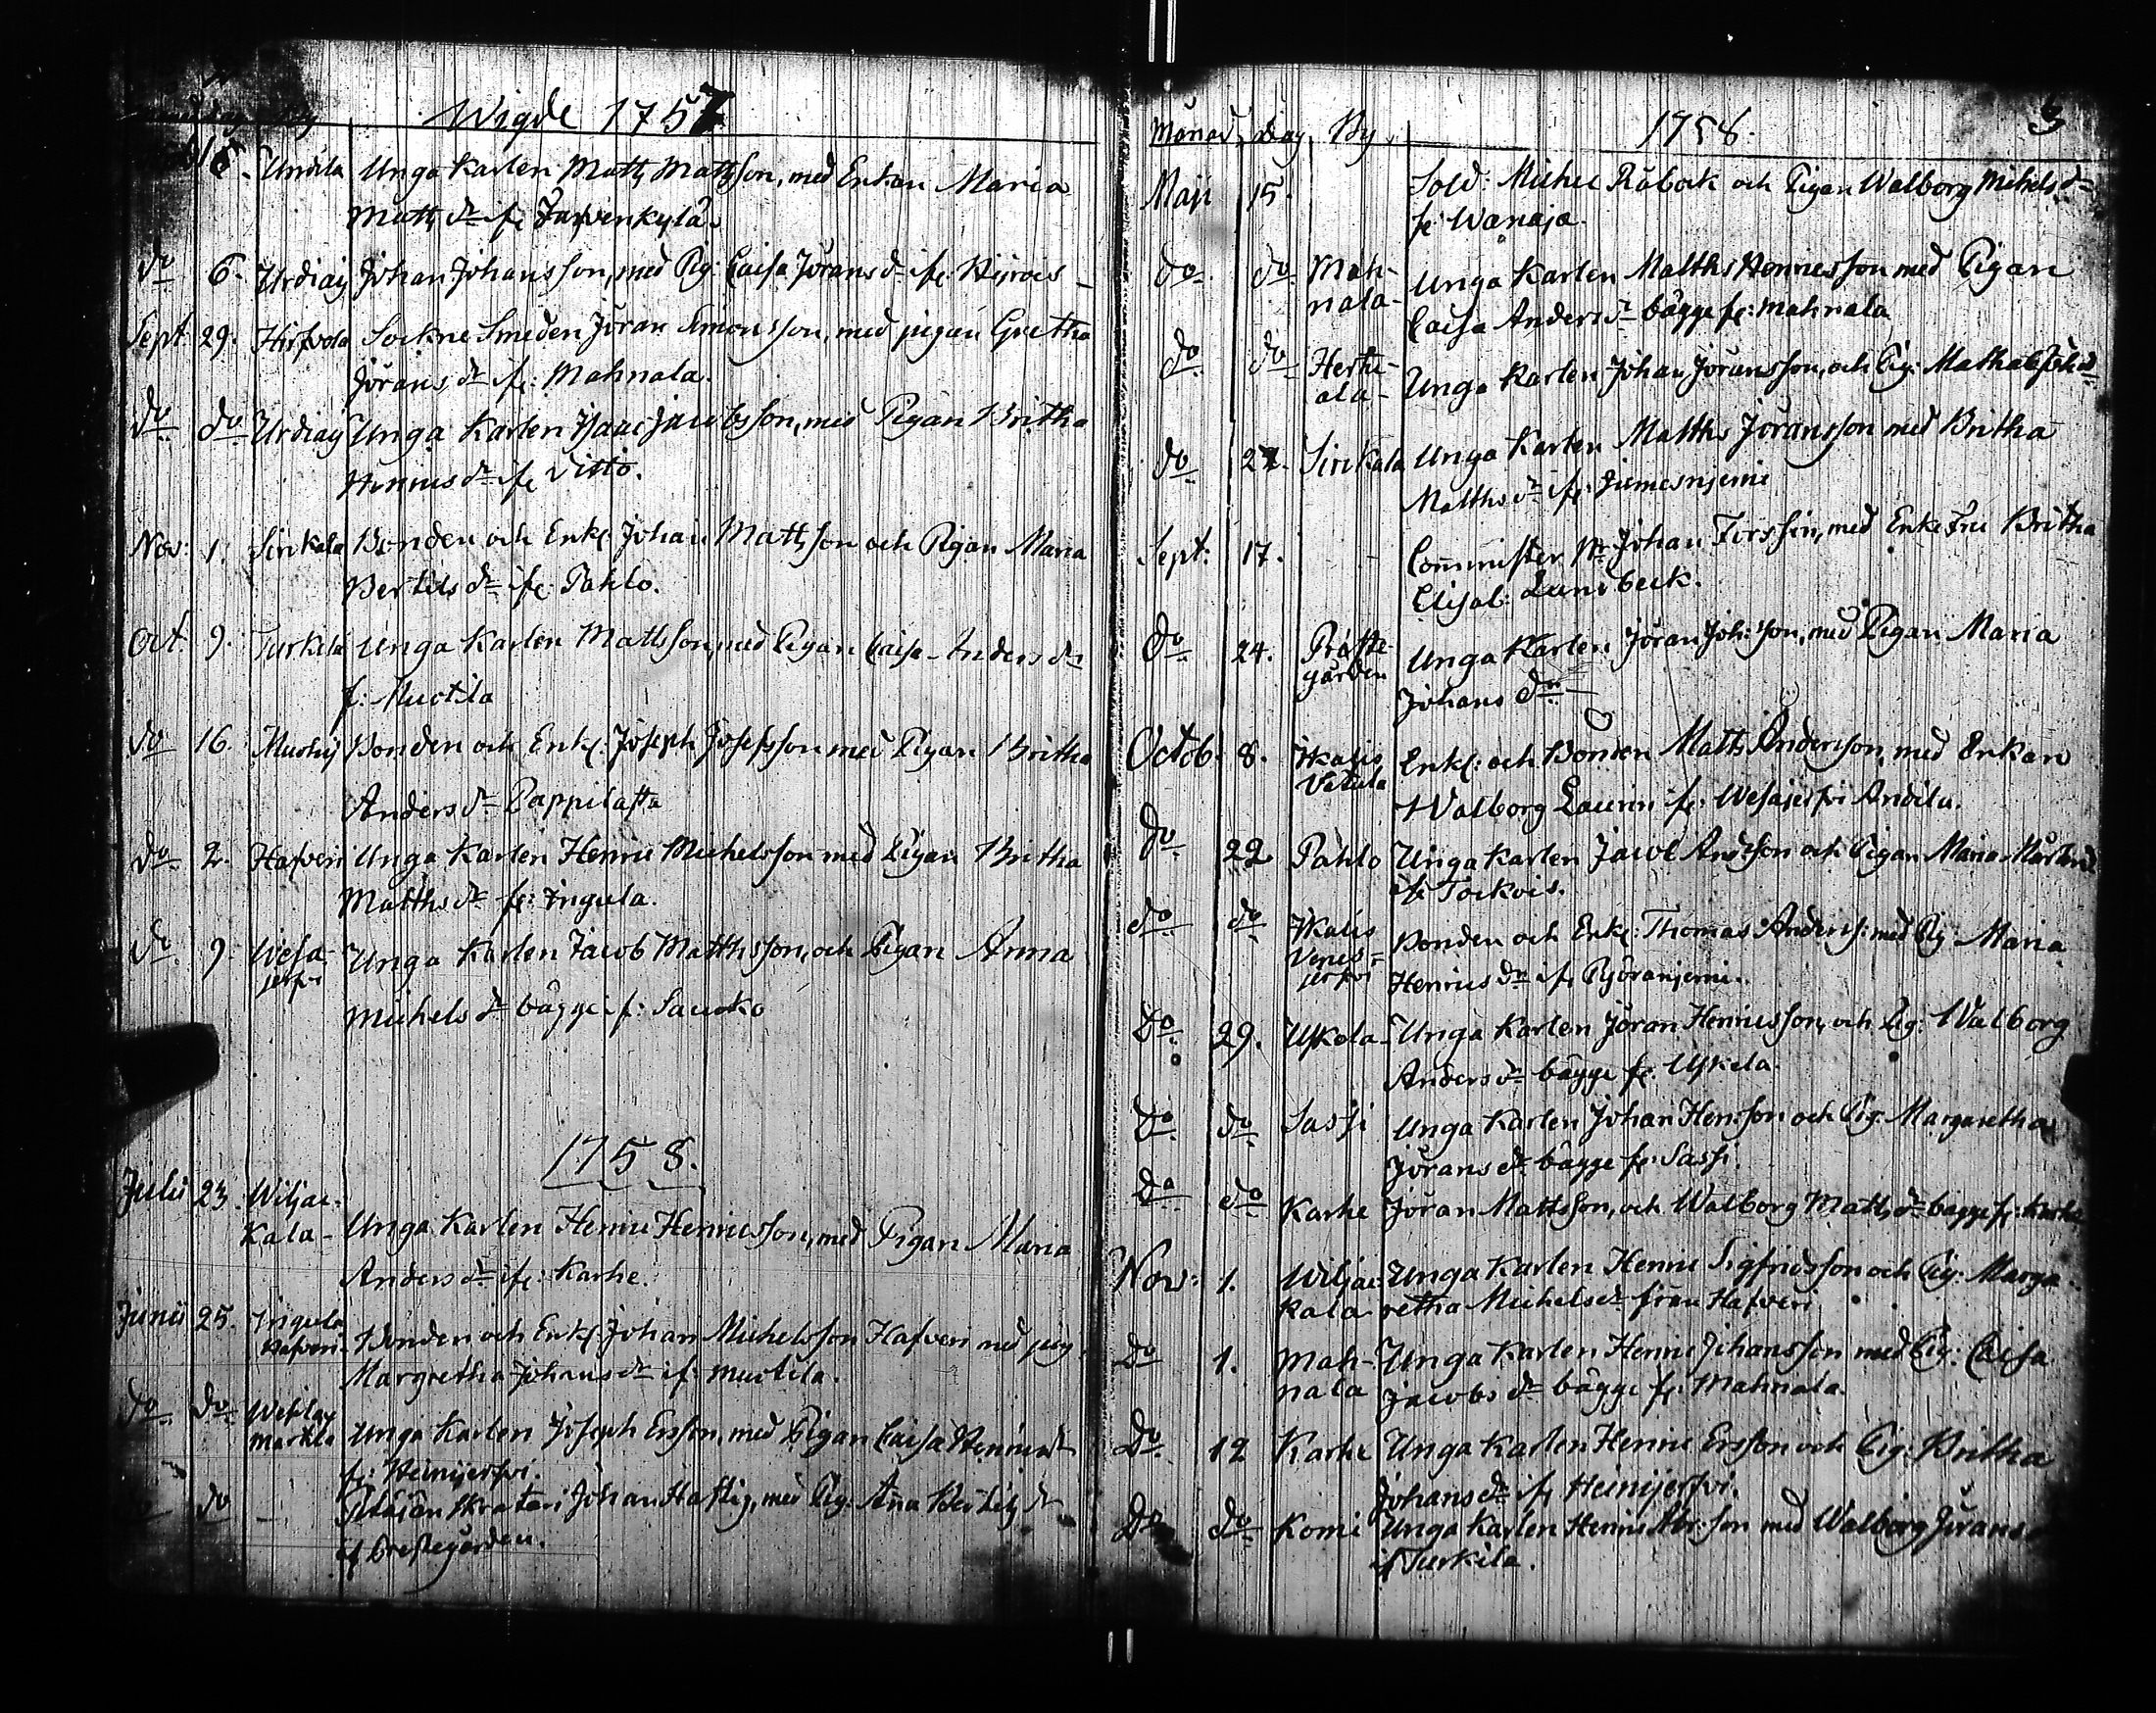 Wigde 1757
Unga Karlen Matts Mattsson, med Enkan Maria
Matts dr if: Järvenkylä.
do 6. Urdiaij Johan Johansson, med Pig: Caisa Jörans dr if:
Sept 29. Hirfvola Sockne Smeden Jöran Simonsson, med pigan Gretha
Jörans dr if: Mahnala.
do do Urdiaij Unga Karlen Isaac Jacobsson, med Pigan Britha
Henrics dr if: Vitto.
Nov: 1. Sirikala Bonden och Enkl: Johan Mattsson och Pigan Maria
Bertils dr if: Pahlo.
Oct. 9. Turkila Unga Karlen Mattsson, med Pigan Caisa Anders dr
f: Muotila
do 16. Bonden och Enkl: Joseph Josephsson med Pigan Britha
Anders dr
do 2. Hafveri Unga Karlen Henric Michelsson med Pigan Britha
Matths dr fr: Ingula.
do 9. Wesa-
jerfvi Unga Karlen Jacob Matthsson, och Pigan Anna
Michels dr bägge if: Sauoko
1758.
Julii 23. Wiljac-
kala - Unga Karlen Henric Henricsson, med Pigan Maria
Anders dr if: Karhe.
Junii 25. Ingula
Hafveri Bonden och Enkl: Johan Michelsson Hafveri med pig.
Margretha Johans dr if: Muotila.
do do Unga Karlen Joseph Ersson, med Pigan Caisa Henrics dr
f: Heinijerfvi.
do - Johan Haftig, med Pig: Anna
if Prestegården.
Månad, Dag, By 1758. 3
Maji 15. Sold: Michel Råbock och Pigan Walborg Michels dr
fr: Wanaja.
do do Mah-
nala - Unga Karlen Matths Henricsson med Pigan
Caisa Anders dr bägge fr: Mahnala
do do Hertu-
ala - Unga Karlen Johan Jöransson, och Pig:
do 27. Sirikala Unga Karlen Matths Jöransson med Britha
Matths dr if:
Sept: 17. Comminister Hr Johan Forssin, med Enke Fru Britha
Elisab: Lundbeck.
do 24. Präste-
gården Unga Karlen Jöran Joh:son, med Pigan Maria
Johans dr -
Octob: 8. Ikalis
Vatula Enkl: och Bonden Matts Andersson, med Enkan
Walborg Laurin fr: Wesajerfvi Andila.
do 22 Pahlo Unga Karlen Jacob Andersson och Pigan Maria
if: Tockois.
do do Ikalis
Venes-
jerfvi Bonden och Enkl: Thomas Anders: med Pig Maria
Henrics dr if:
Do 29. Yskela - Unga Karlen Jöran Henricsson, och Pig: Walborg
Anders dr bägge fr: Yskela.
Do do Sassi Unga Karlen Johan Hensson och Pig: Margaretha
Jörans dr bägge fr: Sassi.
Do do Karhe Jöran Mattsson, och Walborg Matts dr bägge fr: Karhe
Nov: 1. Wiljac-
kala Unga Karlen Henric Sigfridsson och Pig: Marga-
retha Michels dr från Hafveri
Do 1. Mah-
nala Unga Karlen Henric Johansson med Pig: Caisa
Jacobs dr bägge fr: Mahnala.
Do 12 Karhe Unga Karlen Henric Ersson och Pig: Britha
Johans dr if: Heinijerfvi.
Do do Komi Unga Karlen Henric Abr:son med Walborg Jörans
if Turkila.